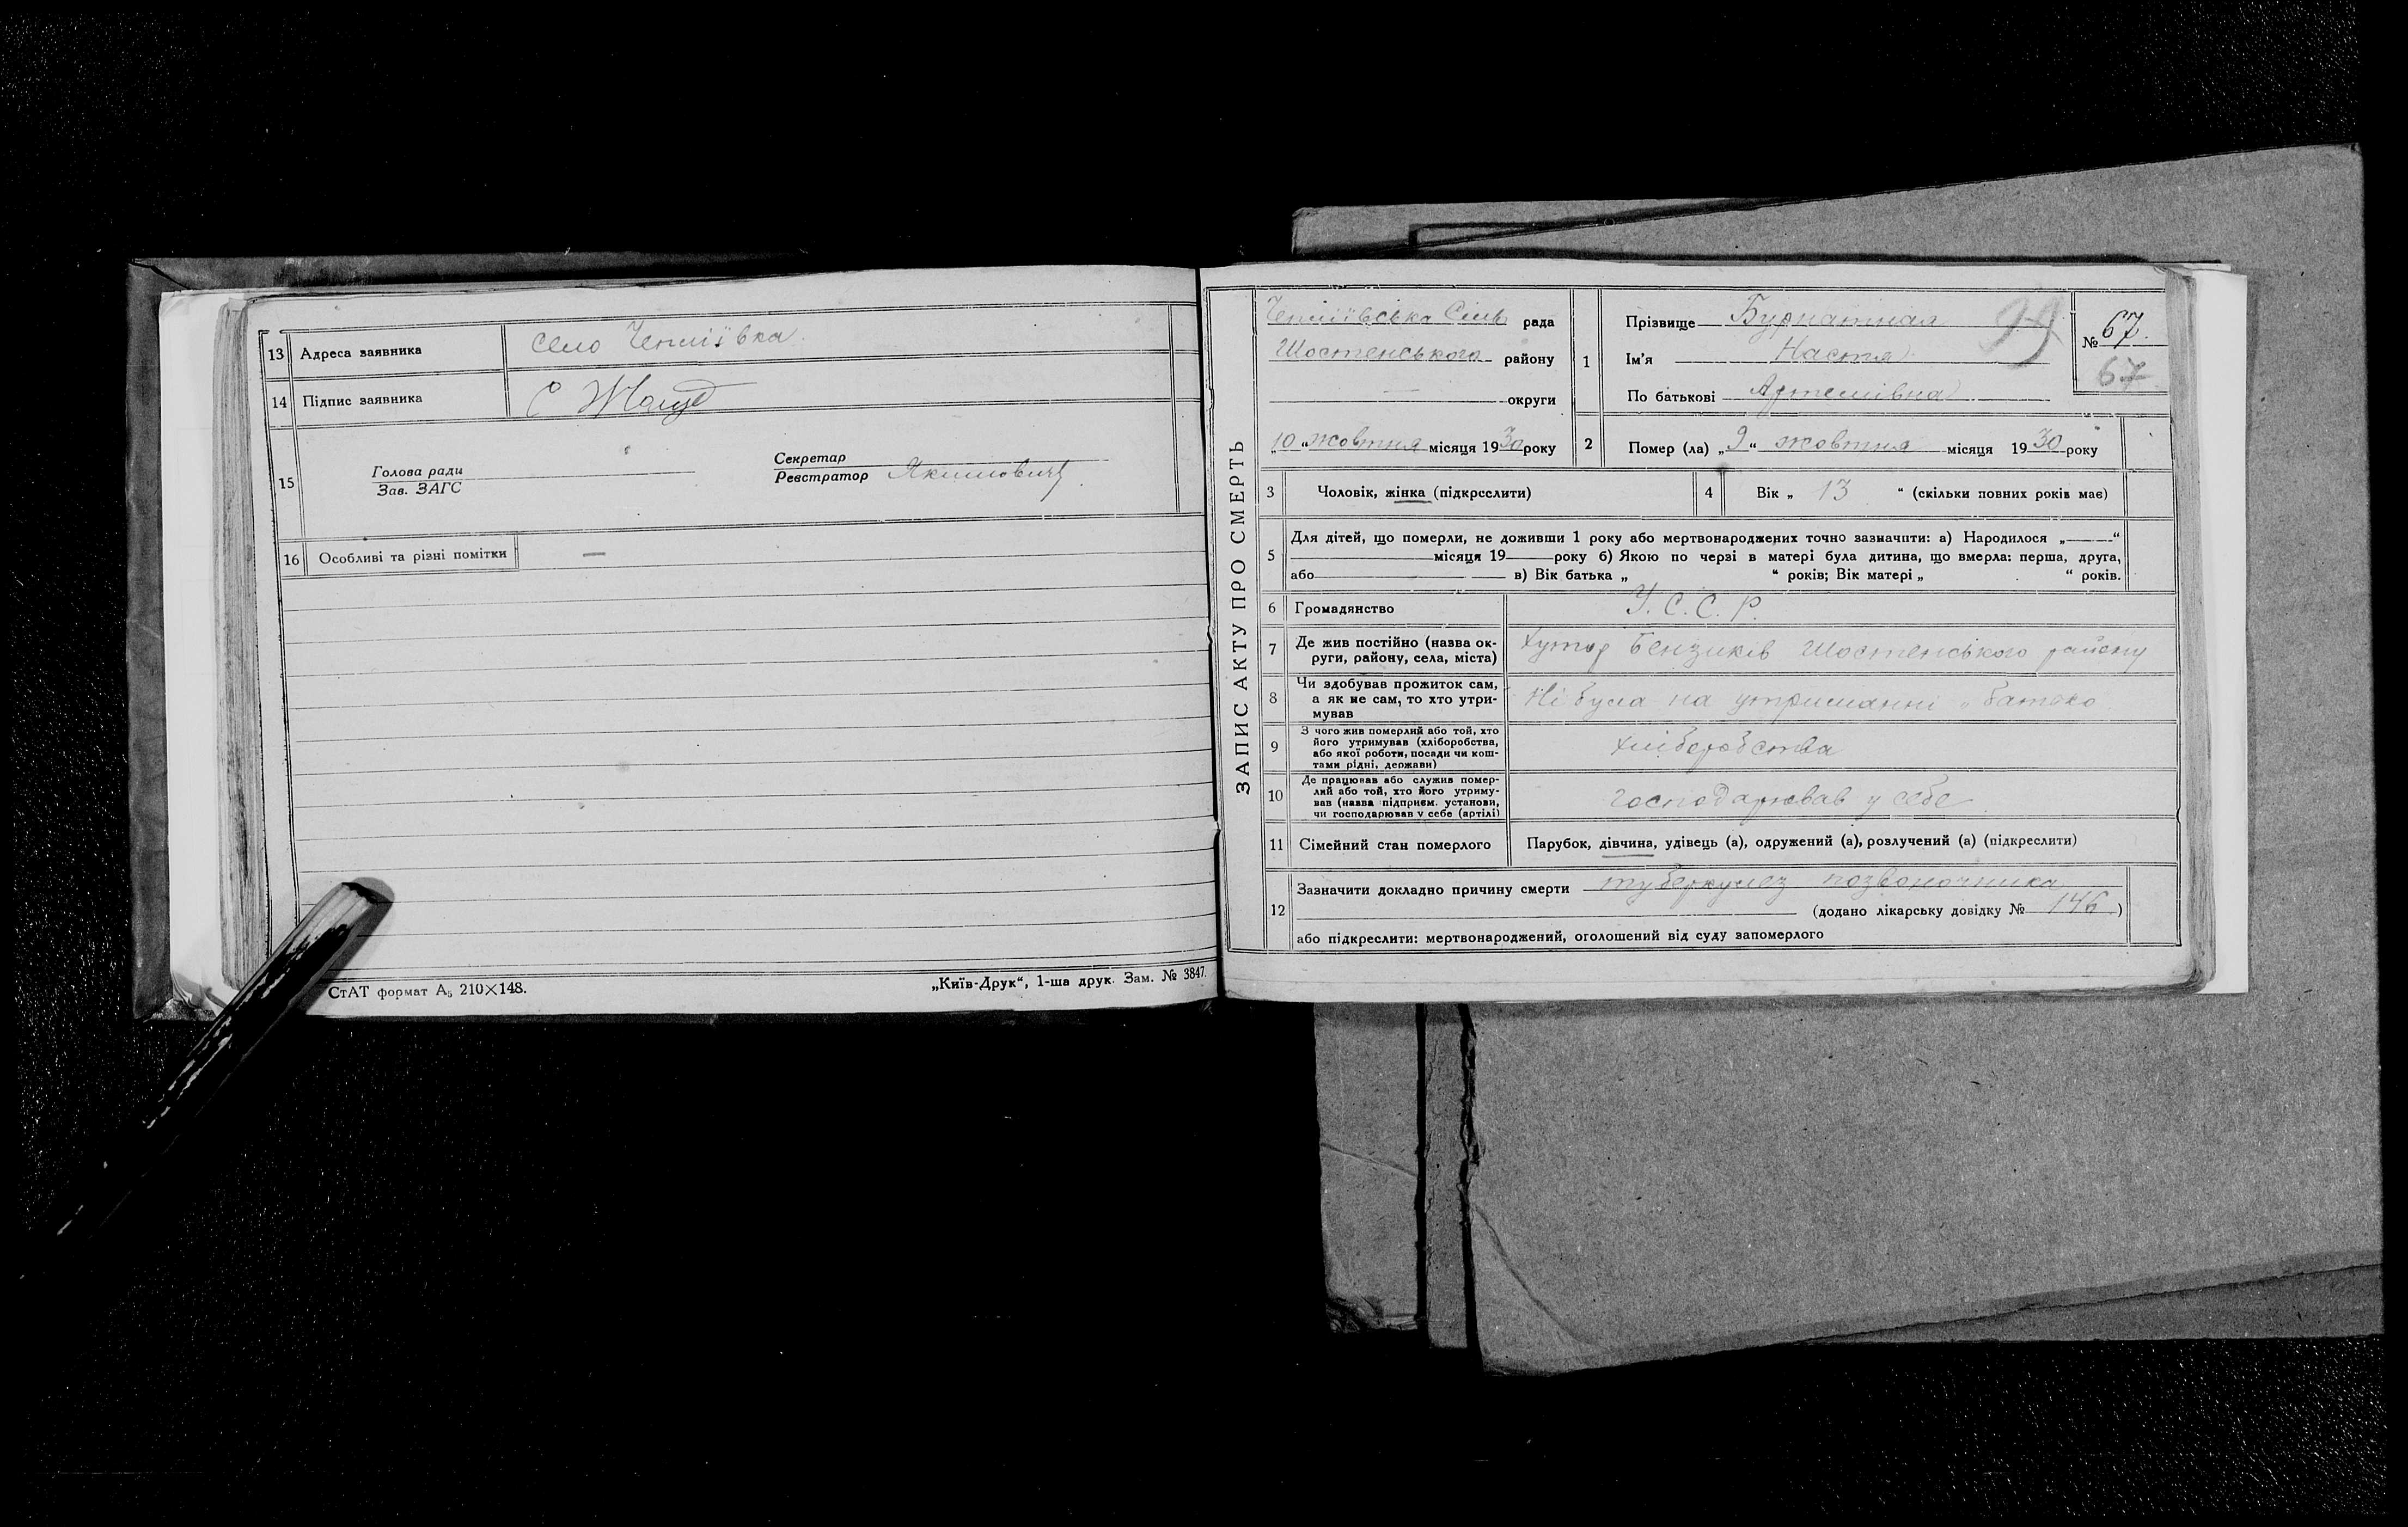 13 Адреса заявника село Чепліївка
14 Підпис заявника С Жолуд
15 Голова ради
Зав. ЗАГС
Секретар
Реєстратор Якимович
16 Особливі та різні помітки —
СтАТ формат А5 210×148.
„Київ-Друк“, 1-ша друк. Зам. № 3847.
ЗАПИС АКТУ ПРО СМЕРТЬ
Чепліївська Сіль рада
Шостенського району
— округи
„10 „ жовтня місяця 1930 року
1 Прізвище Бурнатная
Ім’я Настя
По батькові Артемівна
99
№ 67.
67
2 Помер (ла) „9“ жовтня місяця 1930 року
3 Чоловік, жінка (підкреслити)
4 Вік „ 13 “ (скільки повних років має)
5 Для дітей, що померли, не доживши 1 року або мертвонароджених точно зазначити: а) Народилося „——“
місяця 19—— року б) Якою по черзі в матері була дитина, що вмерла: перша, друга,
або —— в) Вік батька „ “ років; Вік матері „ “ років.
6 Громадянство У. С. С. Р.
7 Де жив постійно (назва ок-
руги, району, села, міста) Хутор Бензиків Шостенського району
8 Чи здобував прожиток сам,
а як не сам, то хто утри-
мував Ні була на утриманні батько
9 З чого жив померлий або той, хто
його утримував (хліборобства,
або якої роботи, посади чи кош-
тами рідні, держави) хліборобства
10 Де працював або служив помер-
лий або той, хто його утриму-
вав (назва підприєм. установи,
чи господарював у себе (артілі) господарював у себе
11 Сімейний стан померлого Парубок, дівчина, удівець (а), одружений (а), розлучений (а) (підкреслити)
12 Зазначити докладно причину смерти туберкульоз позвоночника
(додано лікарську довідку № 146)
або підкреслити: мертвонароджений, оголошений від суду запомерлого